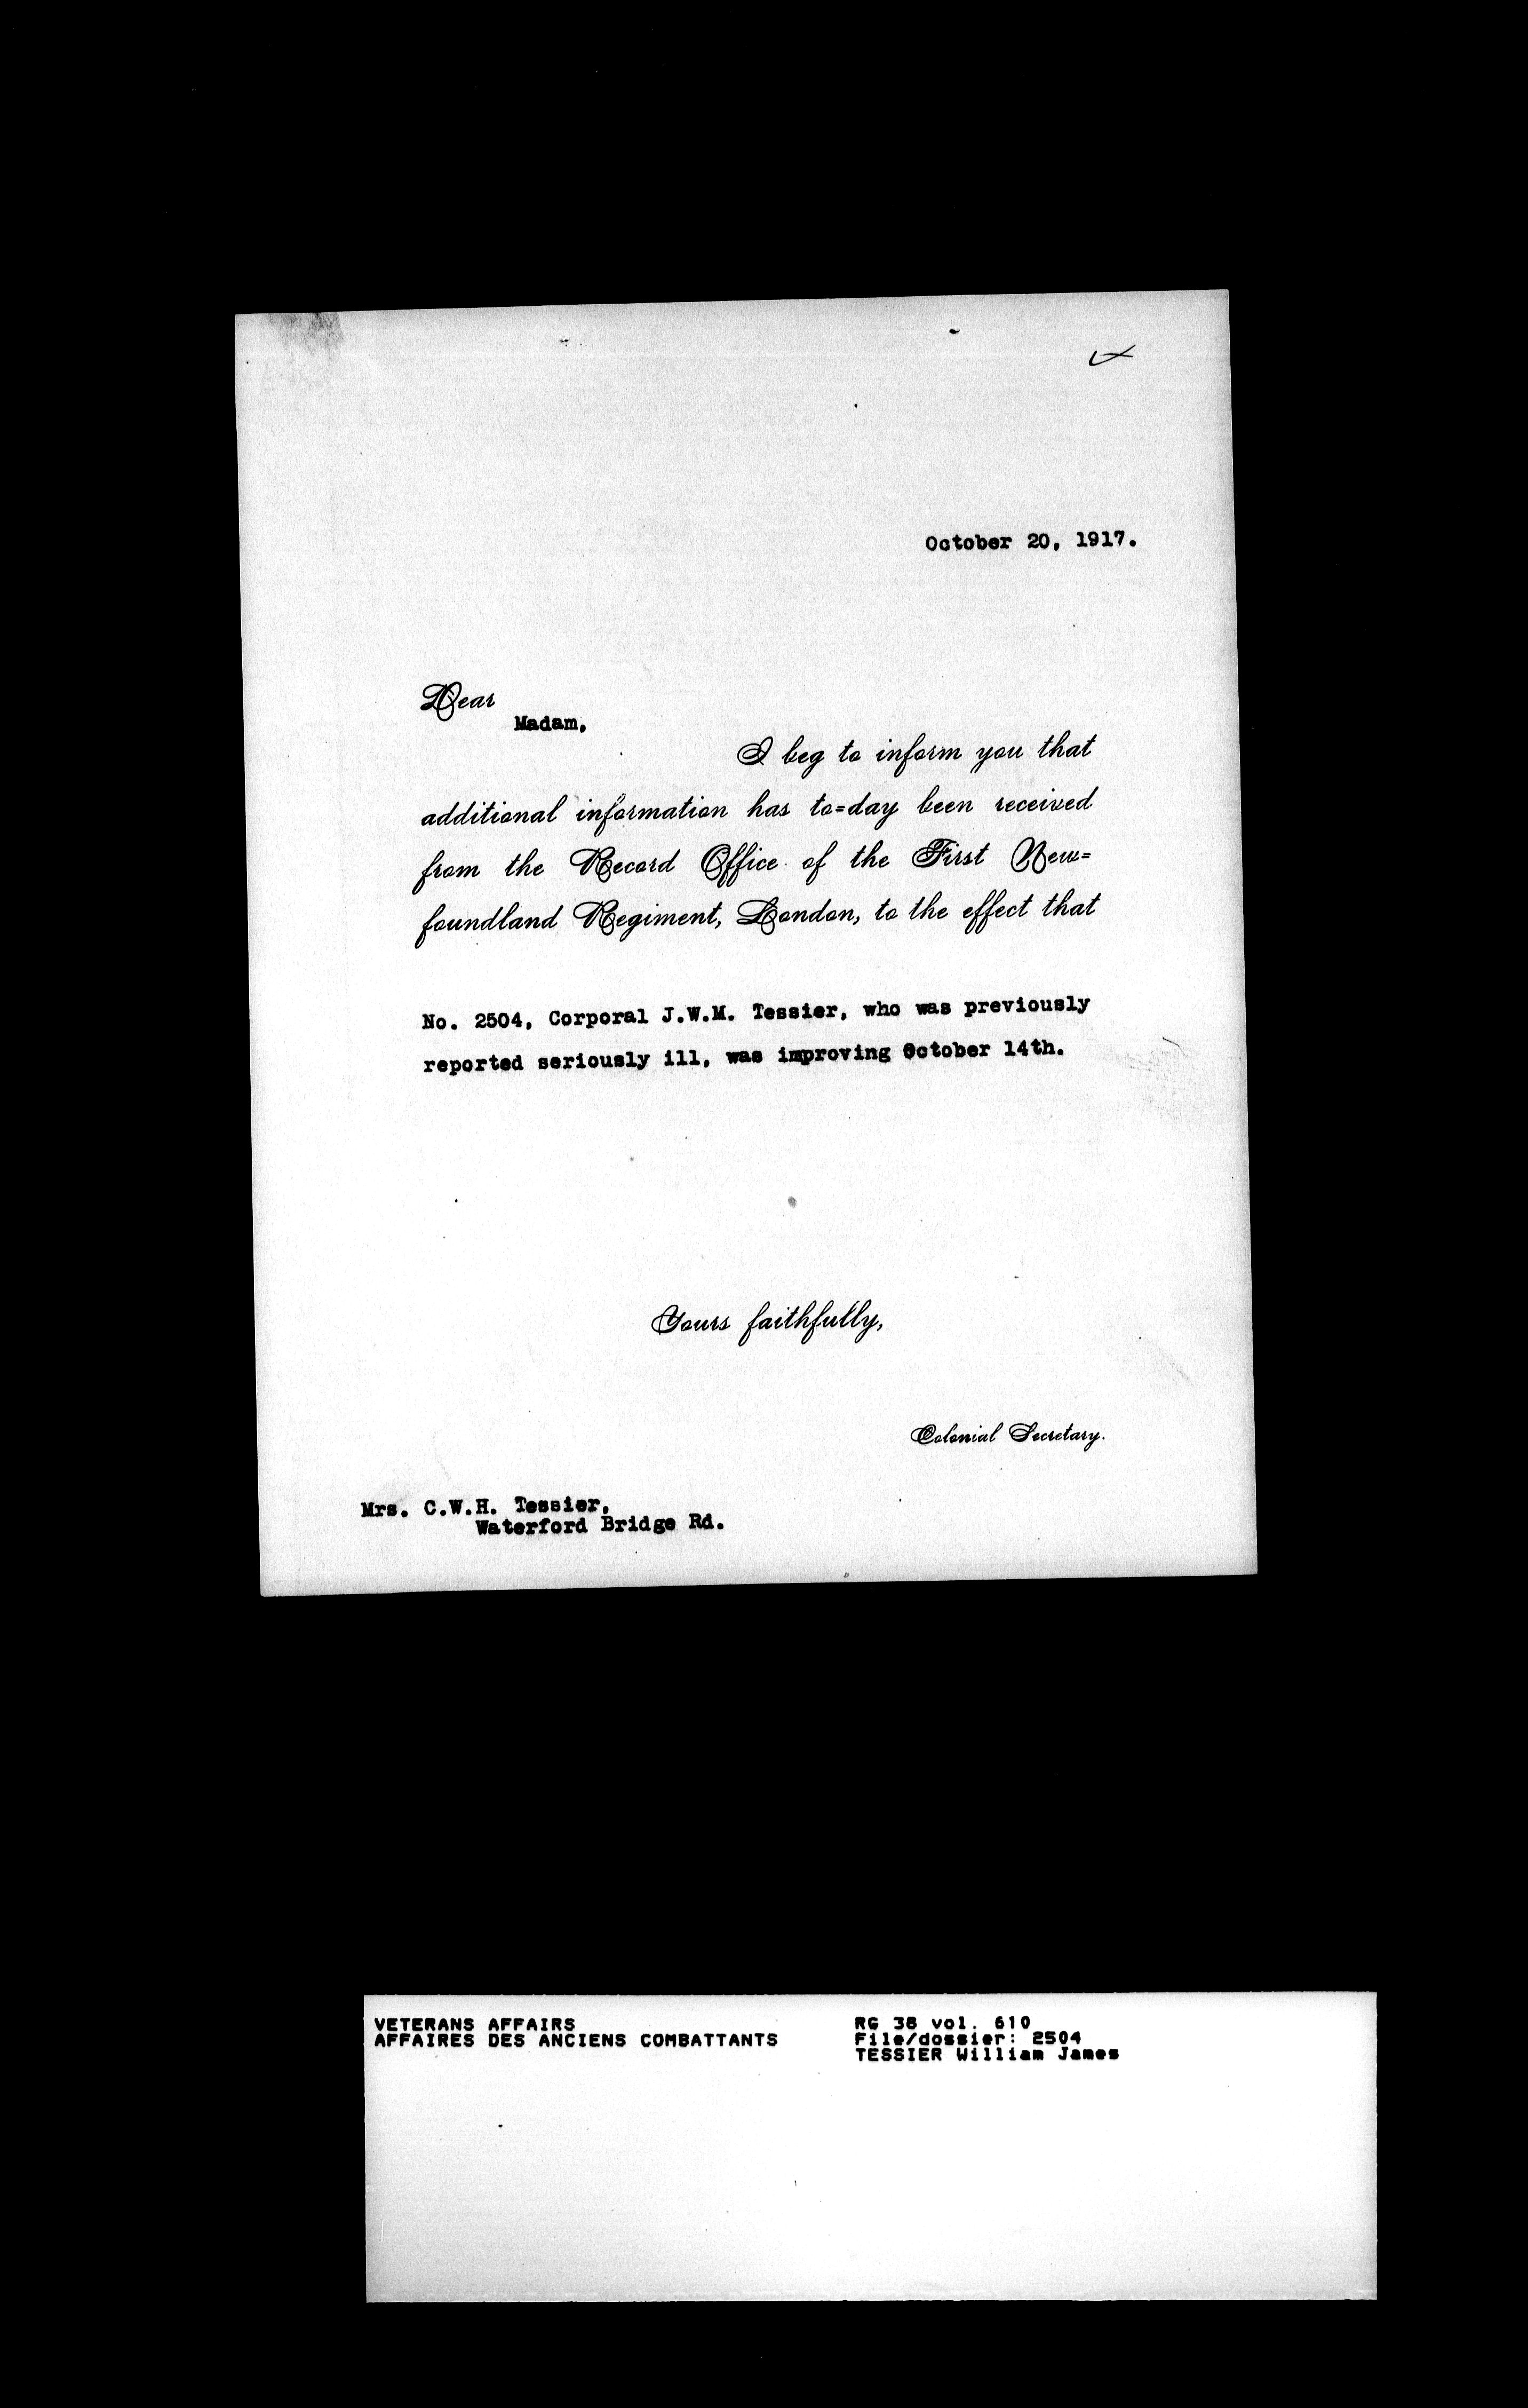 October 20, 1917.
Dear
Madam,
I beg to inform you that
additional information has to=day been received
from the Record Office of the First New=
foundland Regiment, London, to the effect that
No. 2504, Corporal J.W.M. Tessier, who was previously
reported seriously ill, was improving October 14th.
Yours faithfully,
Colonial Secretary.
Mrs. C.W.H. Tessier,
Waterford Bridge Rd.
VETERANS AFFAIRS
AFFAIRES DES ANCIENS COMBATTANTS
RG 38 vol. 610
File/dossier: 2504
TESSIER William James